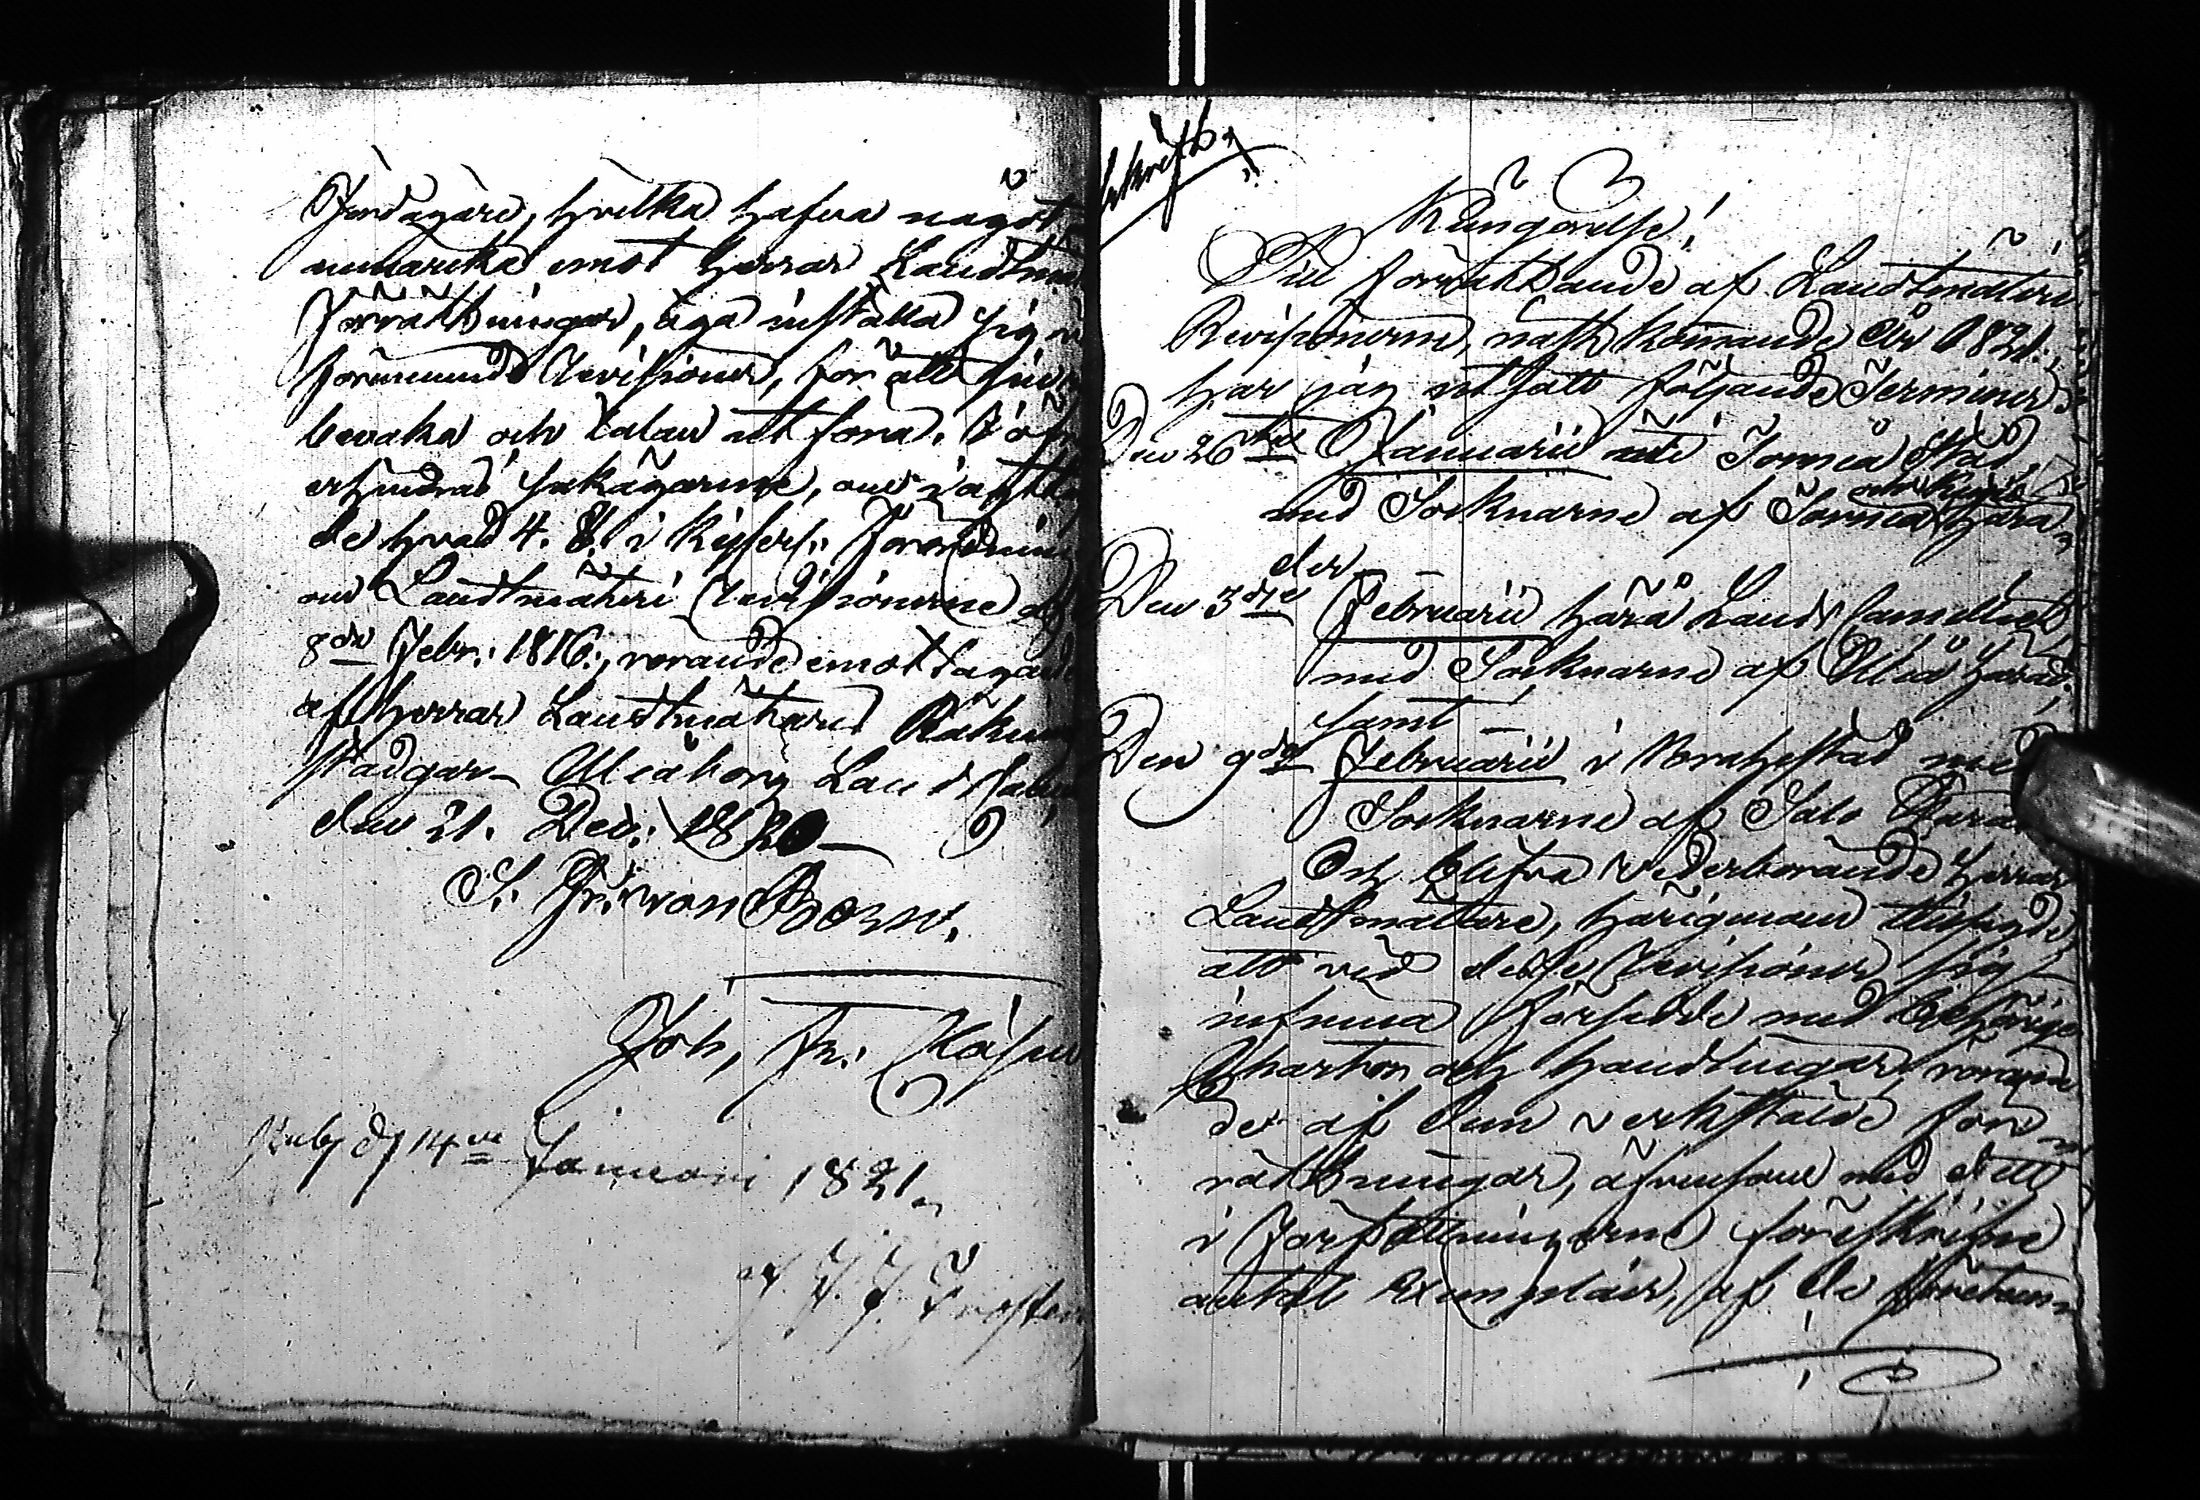 Jordägare, hvilka hafva något
anmärka emot herrar Landtm
Förrättningar, äga inställa sig
förenämnde Revisioner, för att sin
bevaka och talan utföra.
erhindras sakägarne, om iagtta
de hvad 4. §. i Kejserl: Förordnin
om Landtmäteri Revisionerne af
8de Febr: 1816, rörande emottagand
af herrar Landtmätares Räkn
stadgar. Uleåborg Lands
den 21. Dec: 1820
S. Fr: von Born.
Joh, Fr:
d 14de Januari 1821
Kungörelse!
Till förrättande af Landtmäteri
Revisionerne, nästkommande År 1821.
har jag utsatt följande Terminer:
Den 26te Januarii uti Torneå Stad,
med Socknarne af Torneå Hära
och Kemi
der
Den 3dje Februarii härå Lands Cancelliet,
med Socknarne af Uleå Härad,
samt
Den 9de Februarii i Brahestad med
Socknarne af Salo Härad
Och blifva vederbörande herrar
Landtmätare, härigenom tillsagde,
att vid desse Revisioner sig
infinna försedde med behörige
Chartor och handlingar röran
der af dem verkstälde för
rättningar, äfvensom med dett
i Författningarne föreskrifne
antal Exemplar, af de